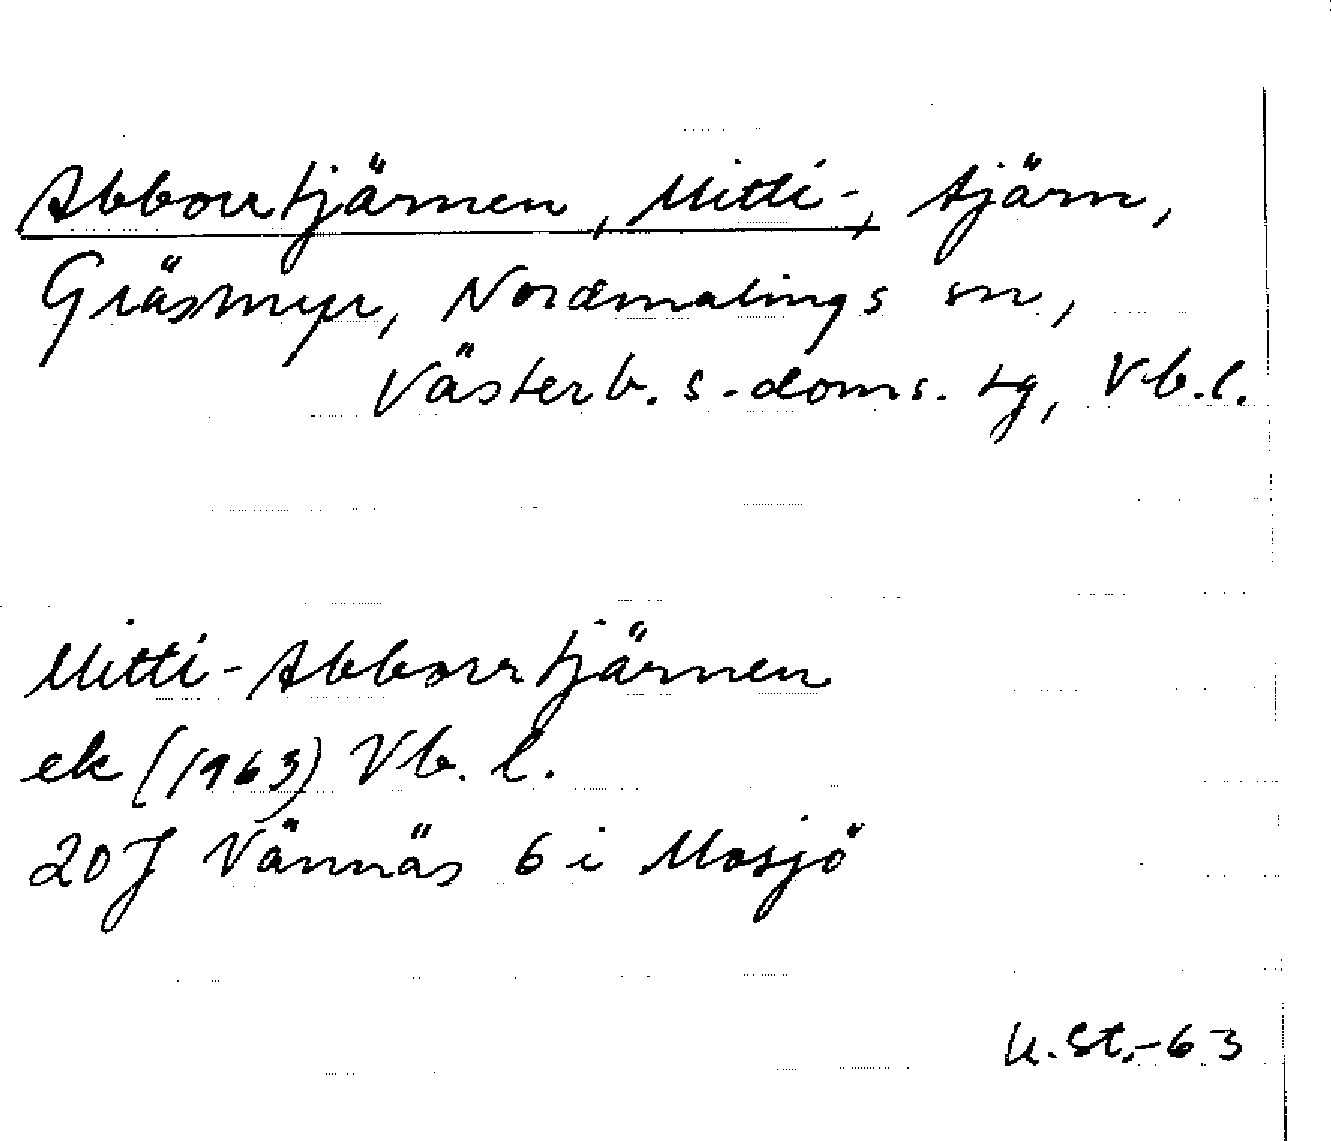 Abborrtjärnen, Mitti-, tjärn,
Gräsmyr, Nordmalings sn,
Västerb. s. doms. tg, Vb.l.
Mitti-Abborrtjärnen
ek (1963) Vb.l.
20J Vännäs 6 i Mosjö
U.St.-63